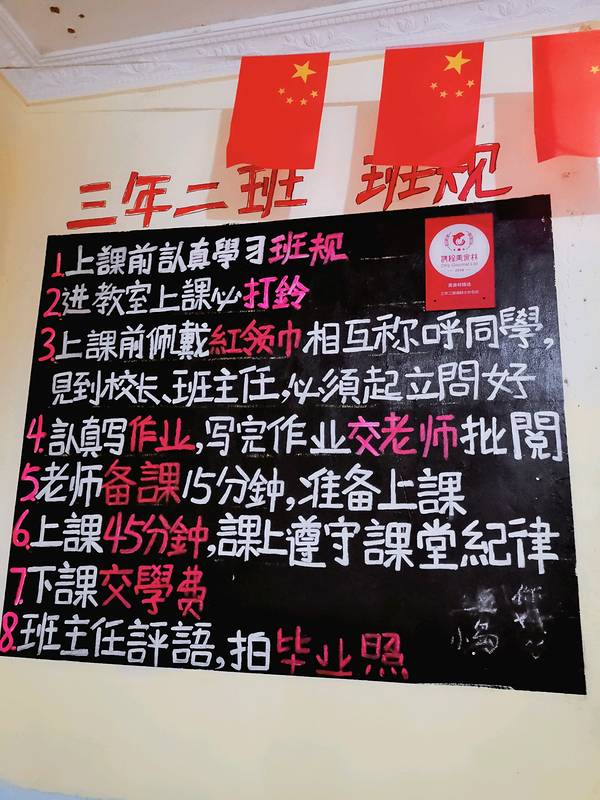 三年二班 班规
1.上課前認真學习班规
2进教室上課必打鈴
3.上課前佩戴紅领巾相互称呼同學,
見到校长、班主任,必須起立問好
4.認真写作业,写完作业交老师批閱
5老师备課15分鐘,准备上課
6.上課45分鐘,課上遵守課堂紀律
7.下課交學费
8.班主任評語,拍毕业照
携程美食林
Ctrip Gourmet List